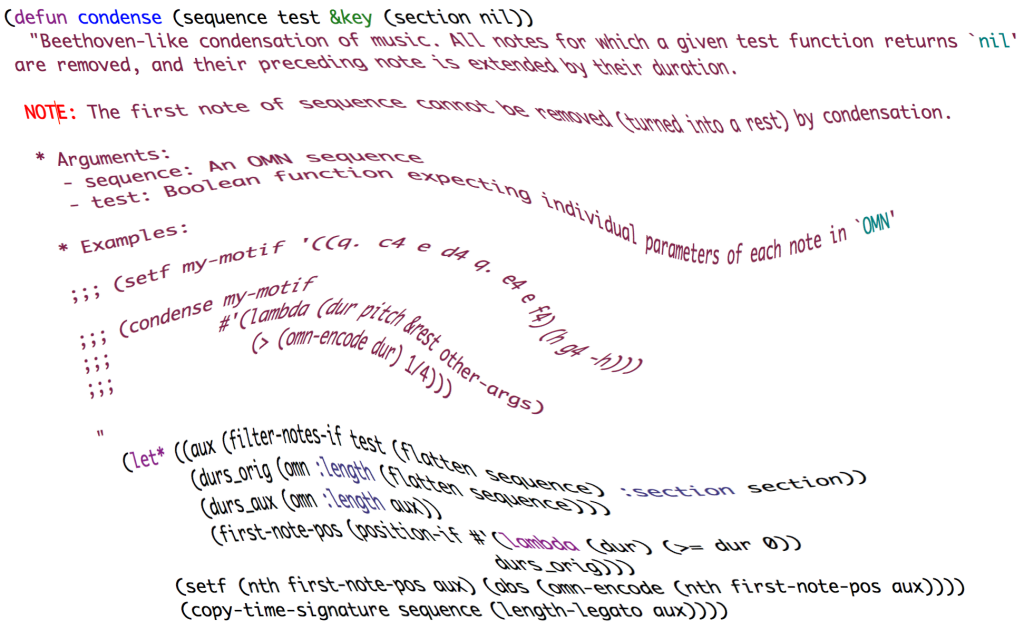 (defun condense (sequence test &key (section nil))
"Beethoven-like condensation of music. All notes for which a given test function returns `nil'
are removed, and their preceding note is extended by their duration.
NOTE: The first note of sequence cannot be removed (turned into a rest) by condensation.
* Arguments:
- sequence: An OMN sequence
- test: Boolean function expecting individual parameters of each note in `OMN'
* Examples:
;;; (setf my-motif '((q. c4 e d4 q. e4 e f4) (h g4 -h)))
;;; (condense my-motif
;;; #'(lambda (dur pitch &rest other-args)
;;; (> (omn-encode dur) 1/4)))
"
(let* ((aux (filter-notes-if test (flatten sequence) :section section))
(durs_orig (omn :length (flatten sequence)))
(durs_aux (omn :length aux))
(first-note-pos (position-if #'(lambda (dur) (>= dur 0))
durs_orig)))
(setf (nth first-note-pos aux) (abs (omn-encode (nth first-note-pos aux))))
(copy-time-signature sequence (length-legato aux))))